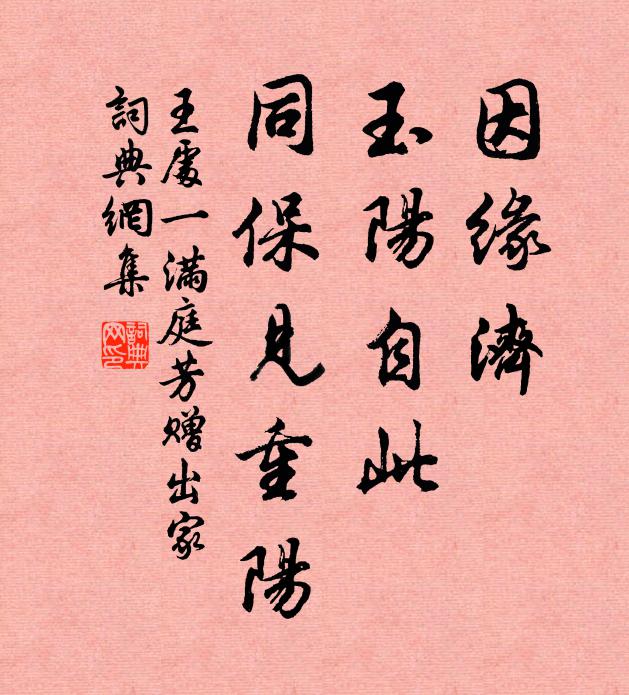 因緣濟
玉陽自此
同保見重陽
王處一滿庭芳贈出家
詞典網集
詞典網印